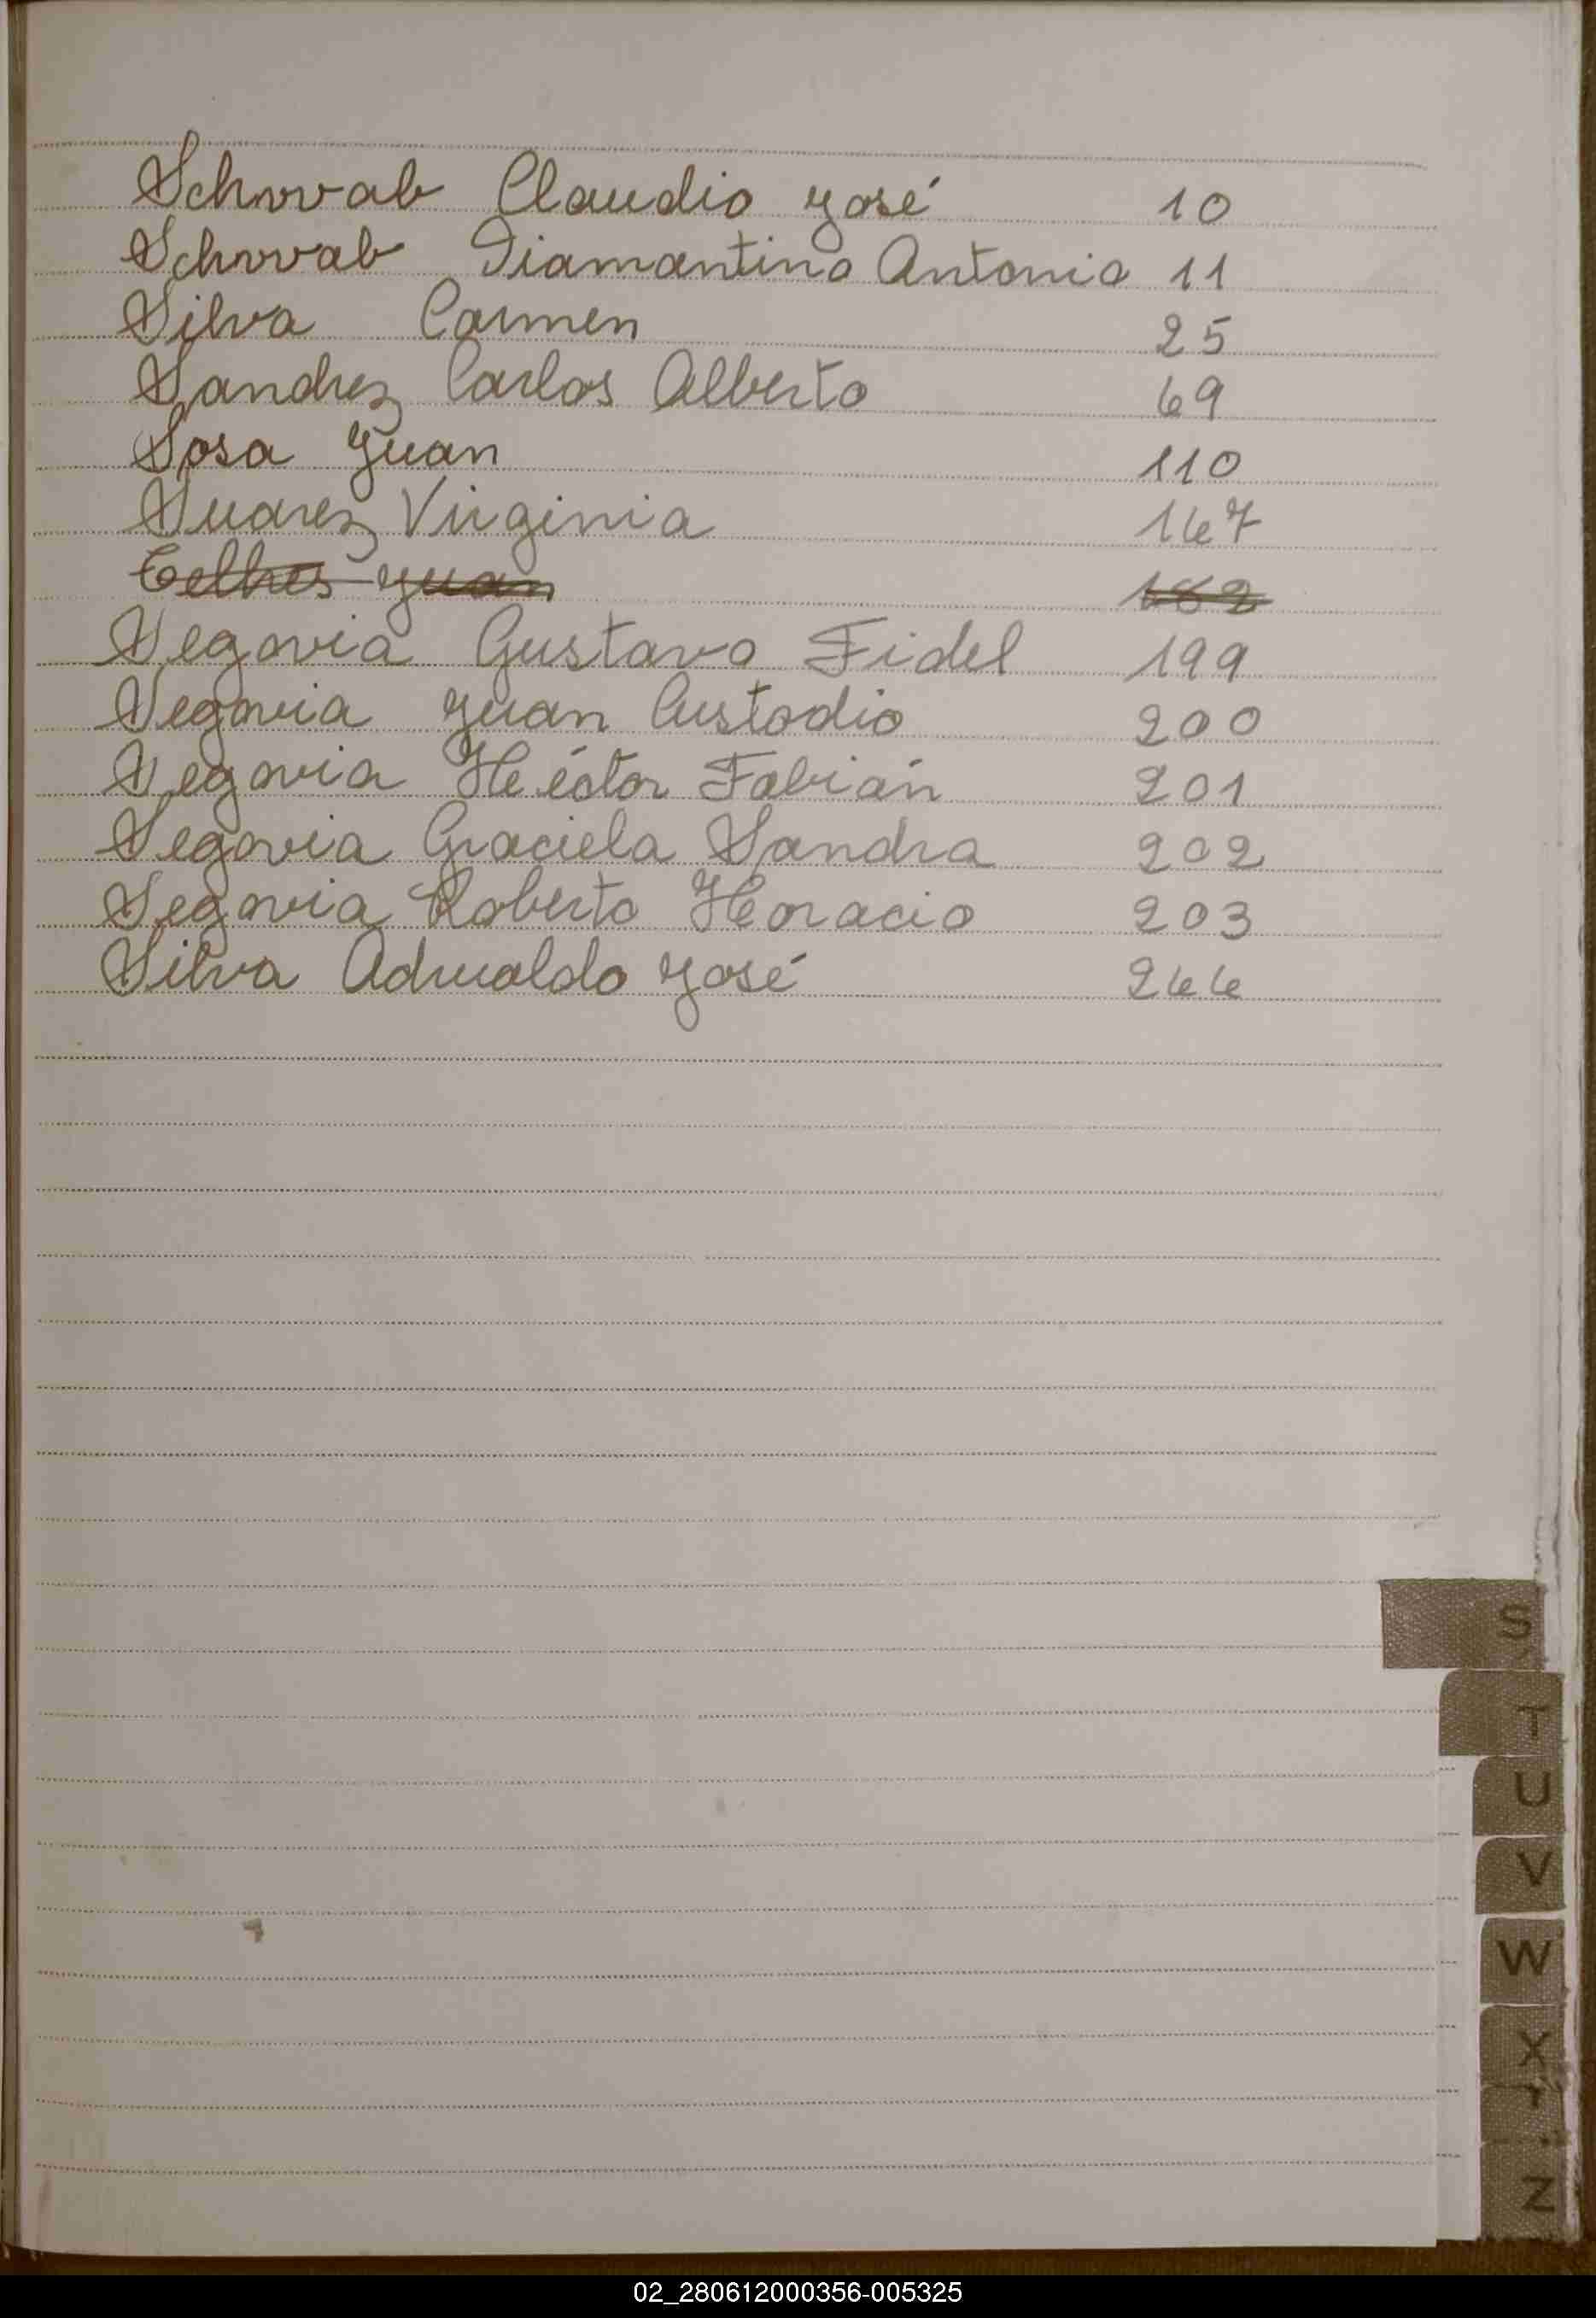 Schwab Claudio José 10
Schwab Diamantino Antonio 11
Silva Carmen 25
Sandrez Carlos Alberto 69
Sosa Juan 110
Suarez Virginia 167
Juan 182
Segovia Gustavo Fidel 199
Segovia Juan Custodio 200
Segovia Héctor Fabián 201
Segovia Graciela Sandra 202
Segovia Roberto Horacio 203
Silva José 266
S
T
U
V
W
X
Z
02_280612000356-005325